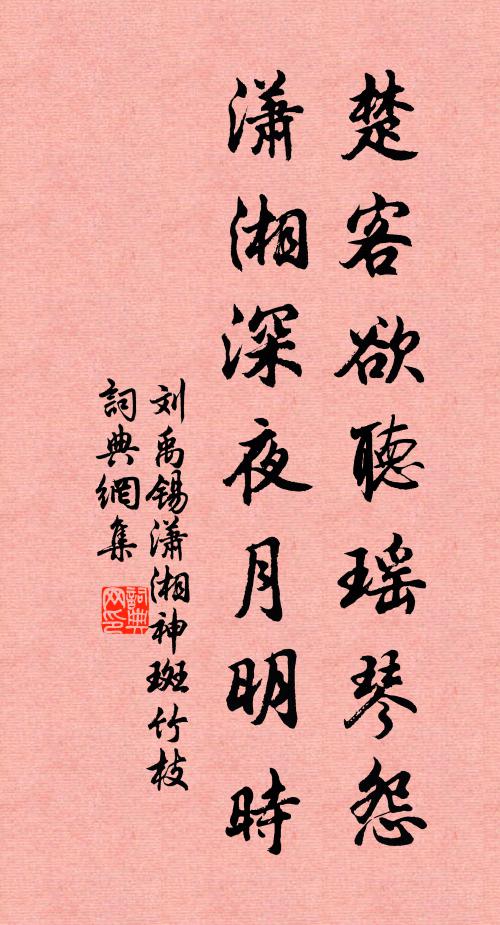 楚客欲聽瑶琴怨
瀟湘深夜月明時
刘禹锡瀟湘神斑竹枝
詞典網集
詞典网印